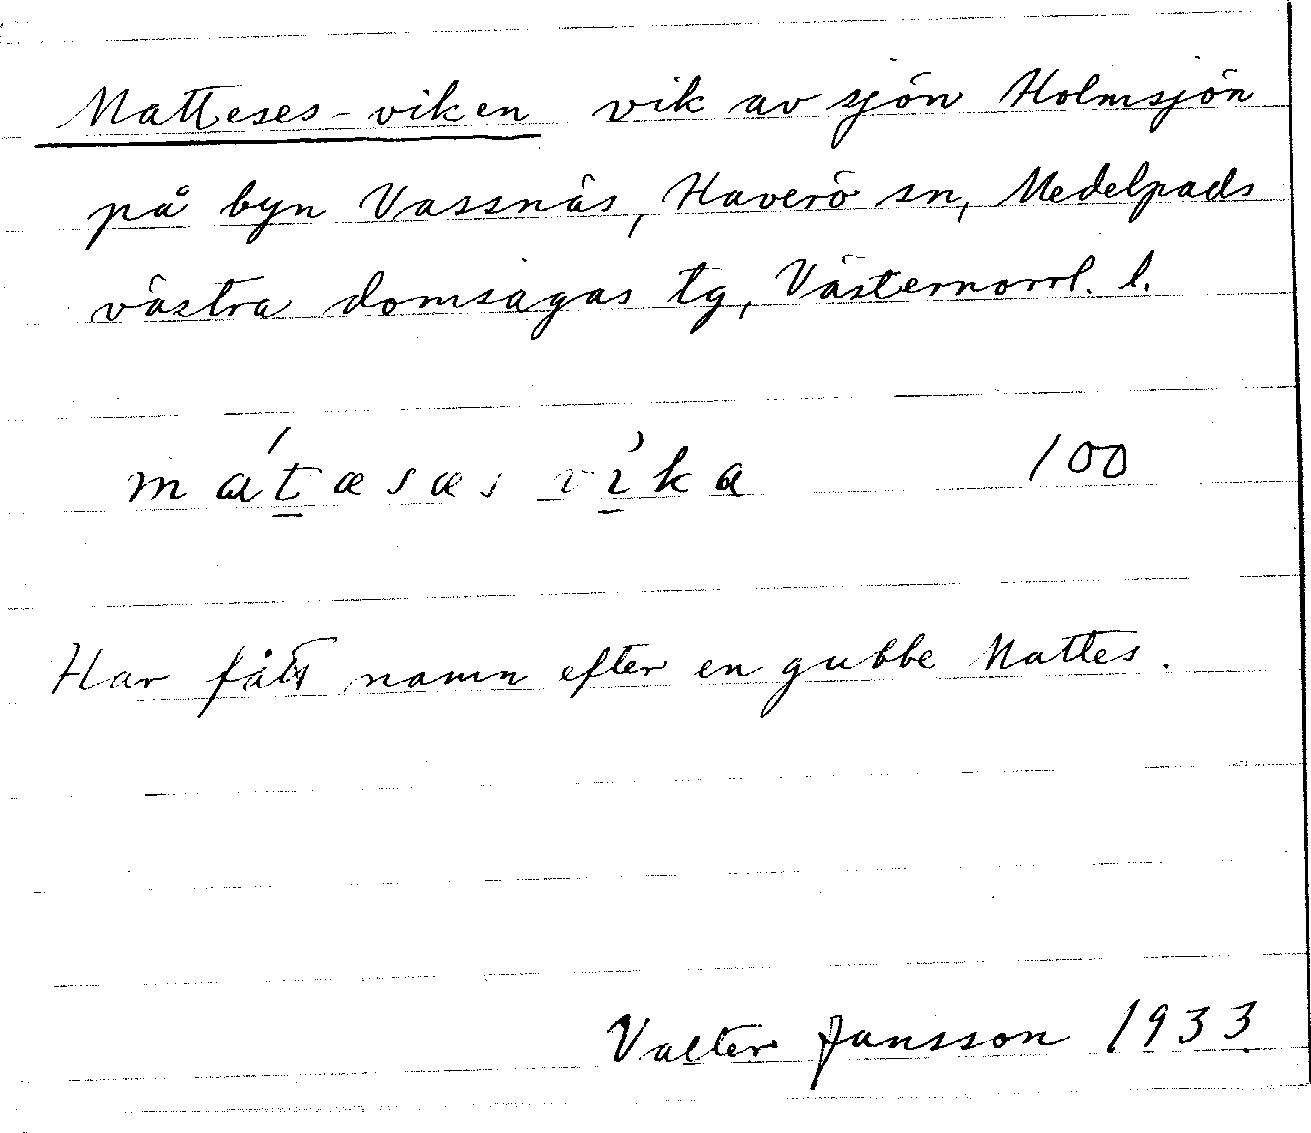 Matteses-viken vik av sjön Holmsjön
på byn Vassnäs, Haverö sn, Medelpads
västra domsagas tg, Västernorrl. l.
mátæsæs vìka 100
Har fått namn efter en gubbe Mattes.
Valter Jansson 1933